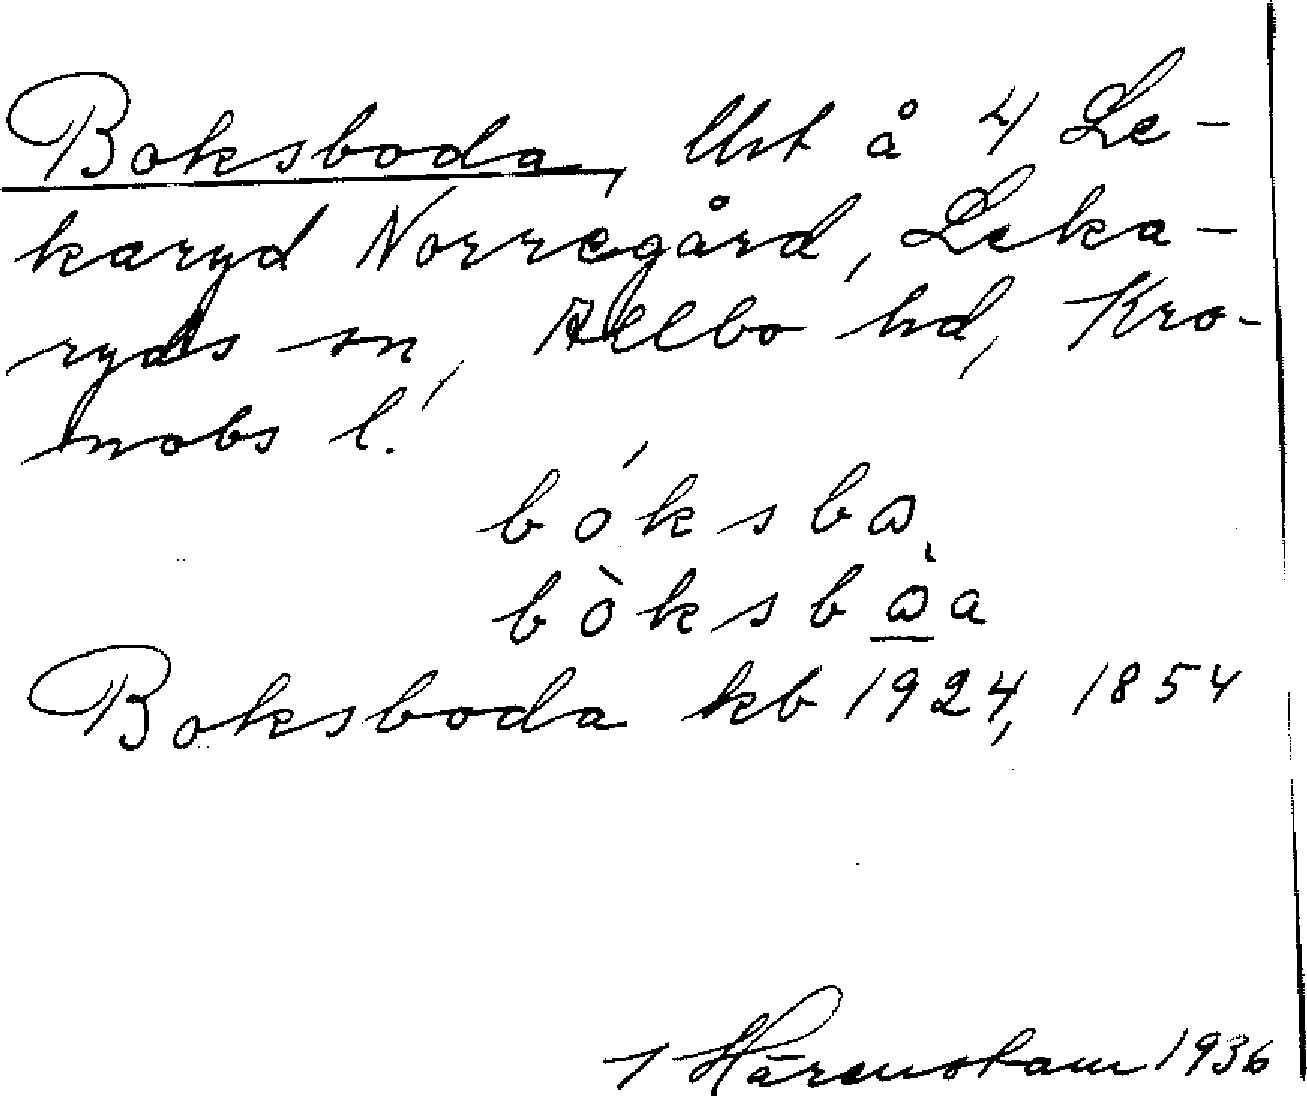 Boksboda, Ust å 4 Le-
karyd Norregård, Leka-
ryds sn, Allbo hd, Kro-
nobs l.
bóksbω
bòksbὼ̲a
Boksboda kb 1924, 1854
Härenstam 1936